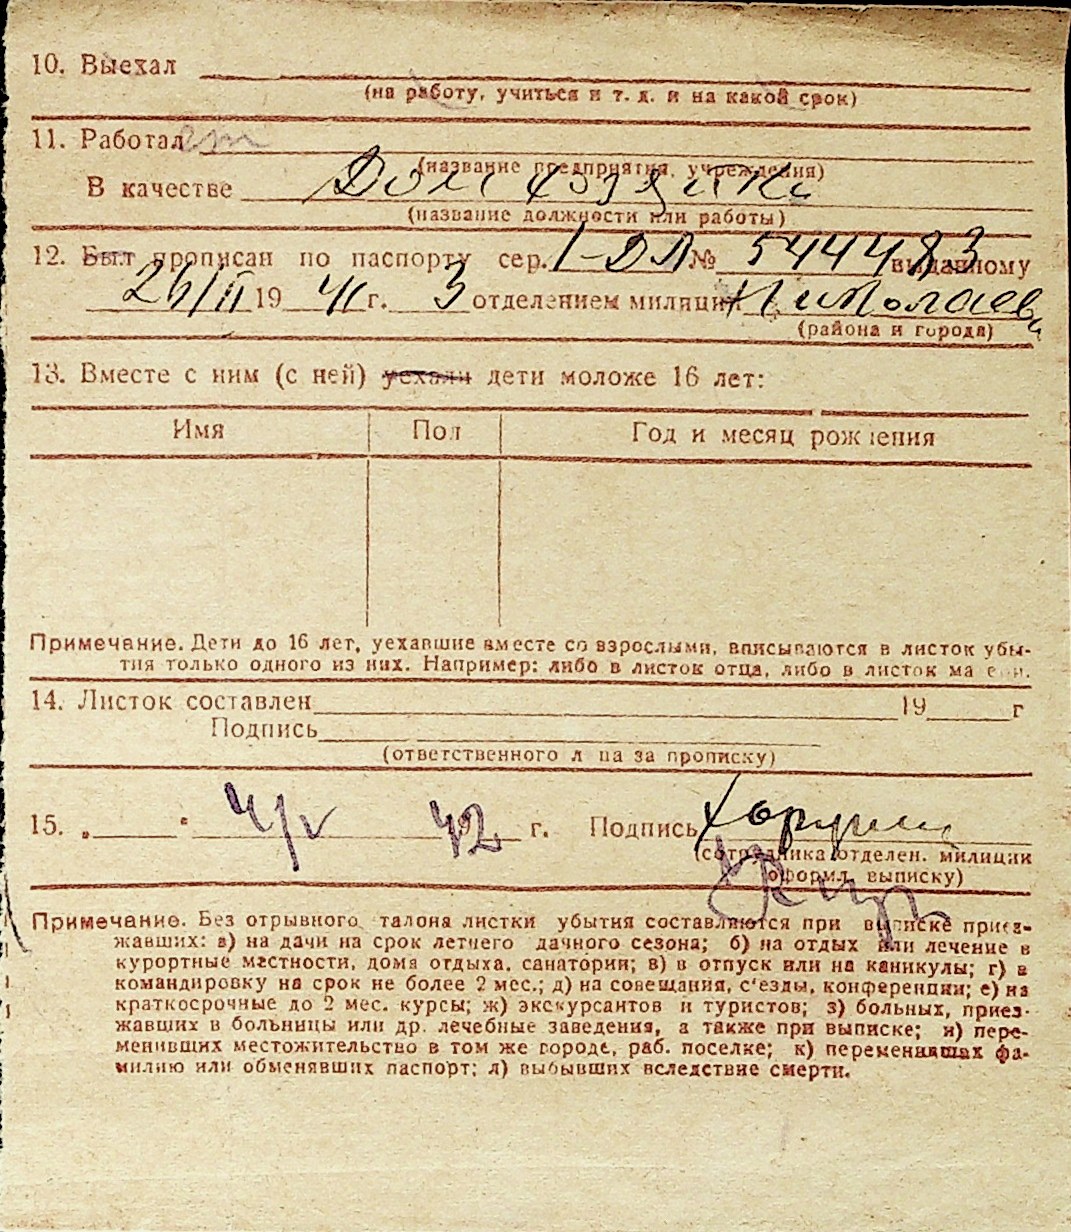 10. Выехал
(на работу, учиться и т. д. и на какой срок)
11. Работает
(название предприятия, учреждения)
В качестве Дом хозяйка
(название должности или работы)
12. Был прописан по паспорту сер. I-ДЛ № 544483 выданному
26/II 19 41 г. 3 отделением милиции Николаев
(района и города)
13. Вместе с ним (с ней) уехали дети моложе 16 лет:
Имя Пол Год и месяц рождения
Примечание. Дети до 16 лет, уехавшие вместе со взрослыми, вписываются в листок убы-
тия только одного из них. Например: либо в листок отца, либо в листок матери.
14. Листок составлен 19 г
Подпись
(ответственного лица за прописку)
15. „ " 4/V 42 г. Подпись
(сотрудника отделен. милиции
оформл. выписку)
Примечание. Без отрывного талона листки убытия составляются при выписке приез-
жавших: а) на дачи на срок летнего дачного сезона; б) на отдых или лечение в
курортные местности, дома отдыха, санатории; в) в отпуск или на каникулы; г) в
командировку на срок не более 2 мес.; д) на совещания, с'езды, конференции; е) на
краткосрочные до 2 мес. курсы; ж) экскурсантов и туристов; з) больных, приез-
жавших в больницы или др. лечебные заведения, а также при выписке; и) пере-
менивших местожительство в том же городе, раб. поселке; к) переменивших фа-
милию или обменявших паспорт; л) выбывших вследствие смерти.